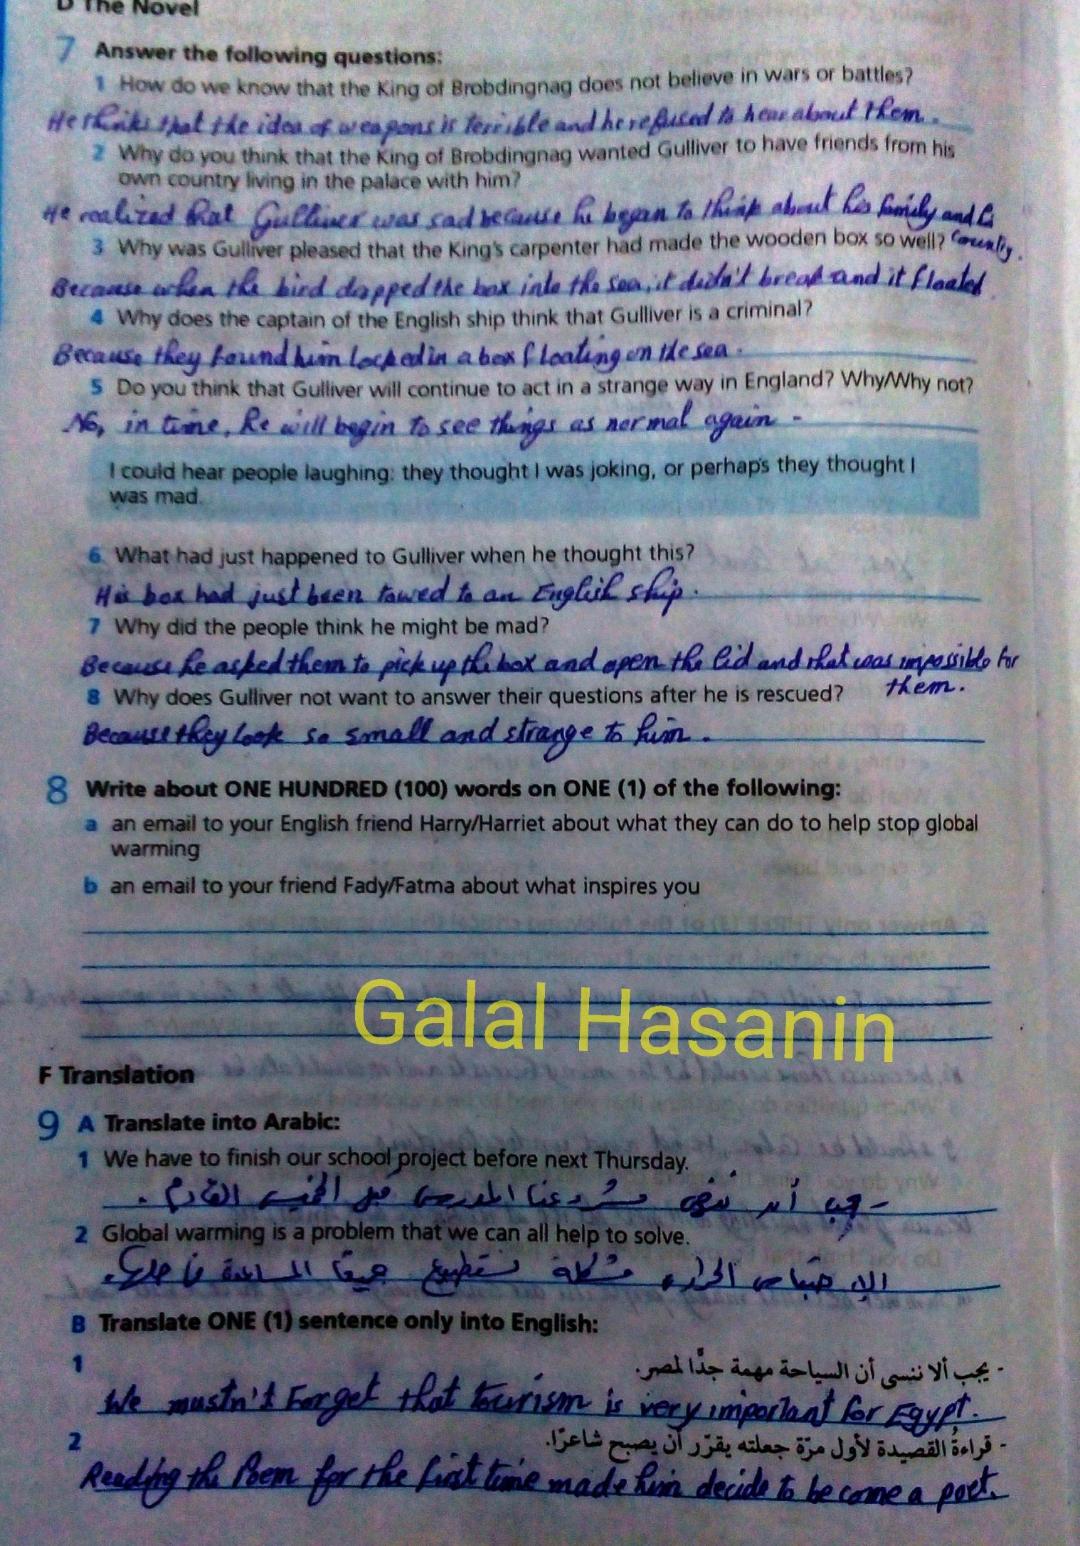 D The Novel
7 Answer the following questions:
1 How do we know that the King of Brobdingnag does not believe in wars or battles?
He thinks that the idea of weapons is terrible and he refused to hear about them.
2 Why do you think that the King of Brobdingnag wanted Gulliver to have friends from his
own country living in the palace with him?
He realized that Gulliver was sad because he began to think about his family and his
country.
3 Why was Gulliver pleased that the King's carpenter had made the wooden box so well?
Because when the bird dropped the box into the sea, it didn't break and it floated.
4 Why does the captain of the English ship think that Gulliver is a criminal?
Because they found him locked in a box floating on the sea.
5 Do you think that Gulliver will continue to act in a strange way in England? Why/Why not?
No, in time, he will begin to see things as normal again.
I could hear people laughing: they thought I was joking, or perhaps they thought I
was mad.
6 What had just happened to Gulliver when he thought this?
His box had just been towed to an English ship.
7 Why did the people think he might be mad?
Because he asked them to pick up the box and open the lid and that was impossible for
them.
8 Why does Gulliver not want to answer their questions after he is rescued?
Because they look so small and strange to him.
8 Write about ONE HUNDRED (100) words on ONE (1) of the following:
a an email to your English friend Harry/Harriet about what they can do to help stop global
warming
b an email to your friend Fady/Fatma about what inspires you
Galal Hasanin
F Translation
9 A Translate into Arabic:
1 We have to finish our school project before next Thursday.
- يجب أن ننهى مشروعنا المدرسى قبل الخميس القادم.
2 Global warming is a problem that we can all help to solve.
الاحتباس الحرارى مشكلة نستطيع جميعًا المساعدة فى حلها.
B Translate ONE (1) sentence only into English:
1
- يجب ألا ننسى أن السياحة مهمة جدًا لمصر.
We mustn't forget that tourism is very important for Egypt.
2
- قراءةُ القصيدة لأول مرّة جعلته يقرّر أن يصبح شاعرًا.
Reading the Poem for the first time made him decide to become a poet.